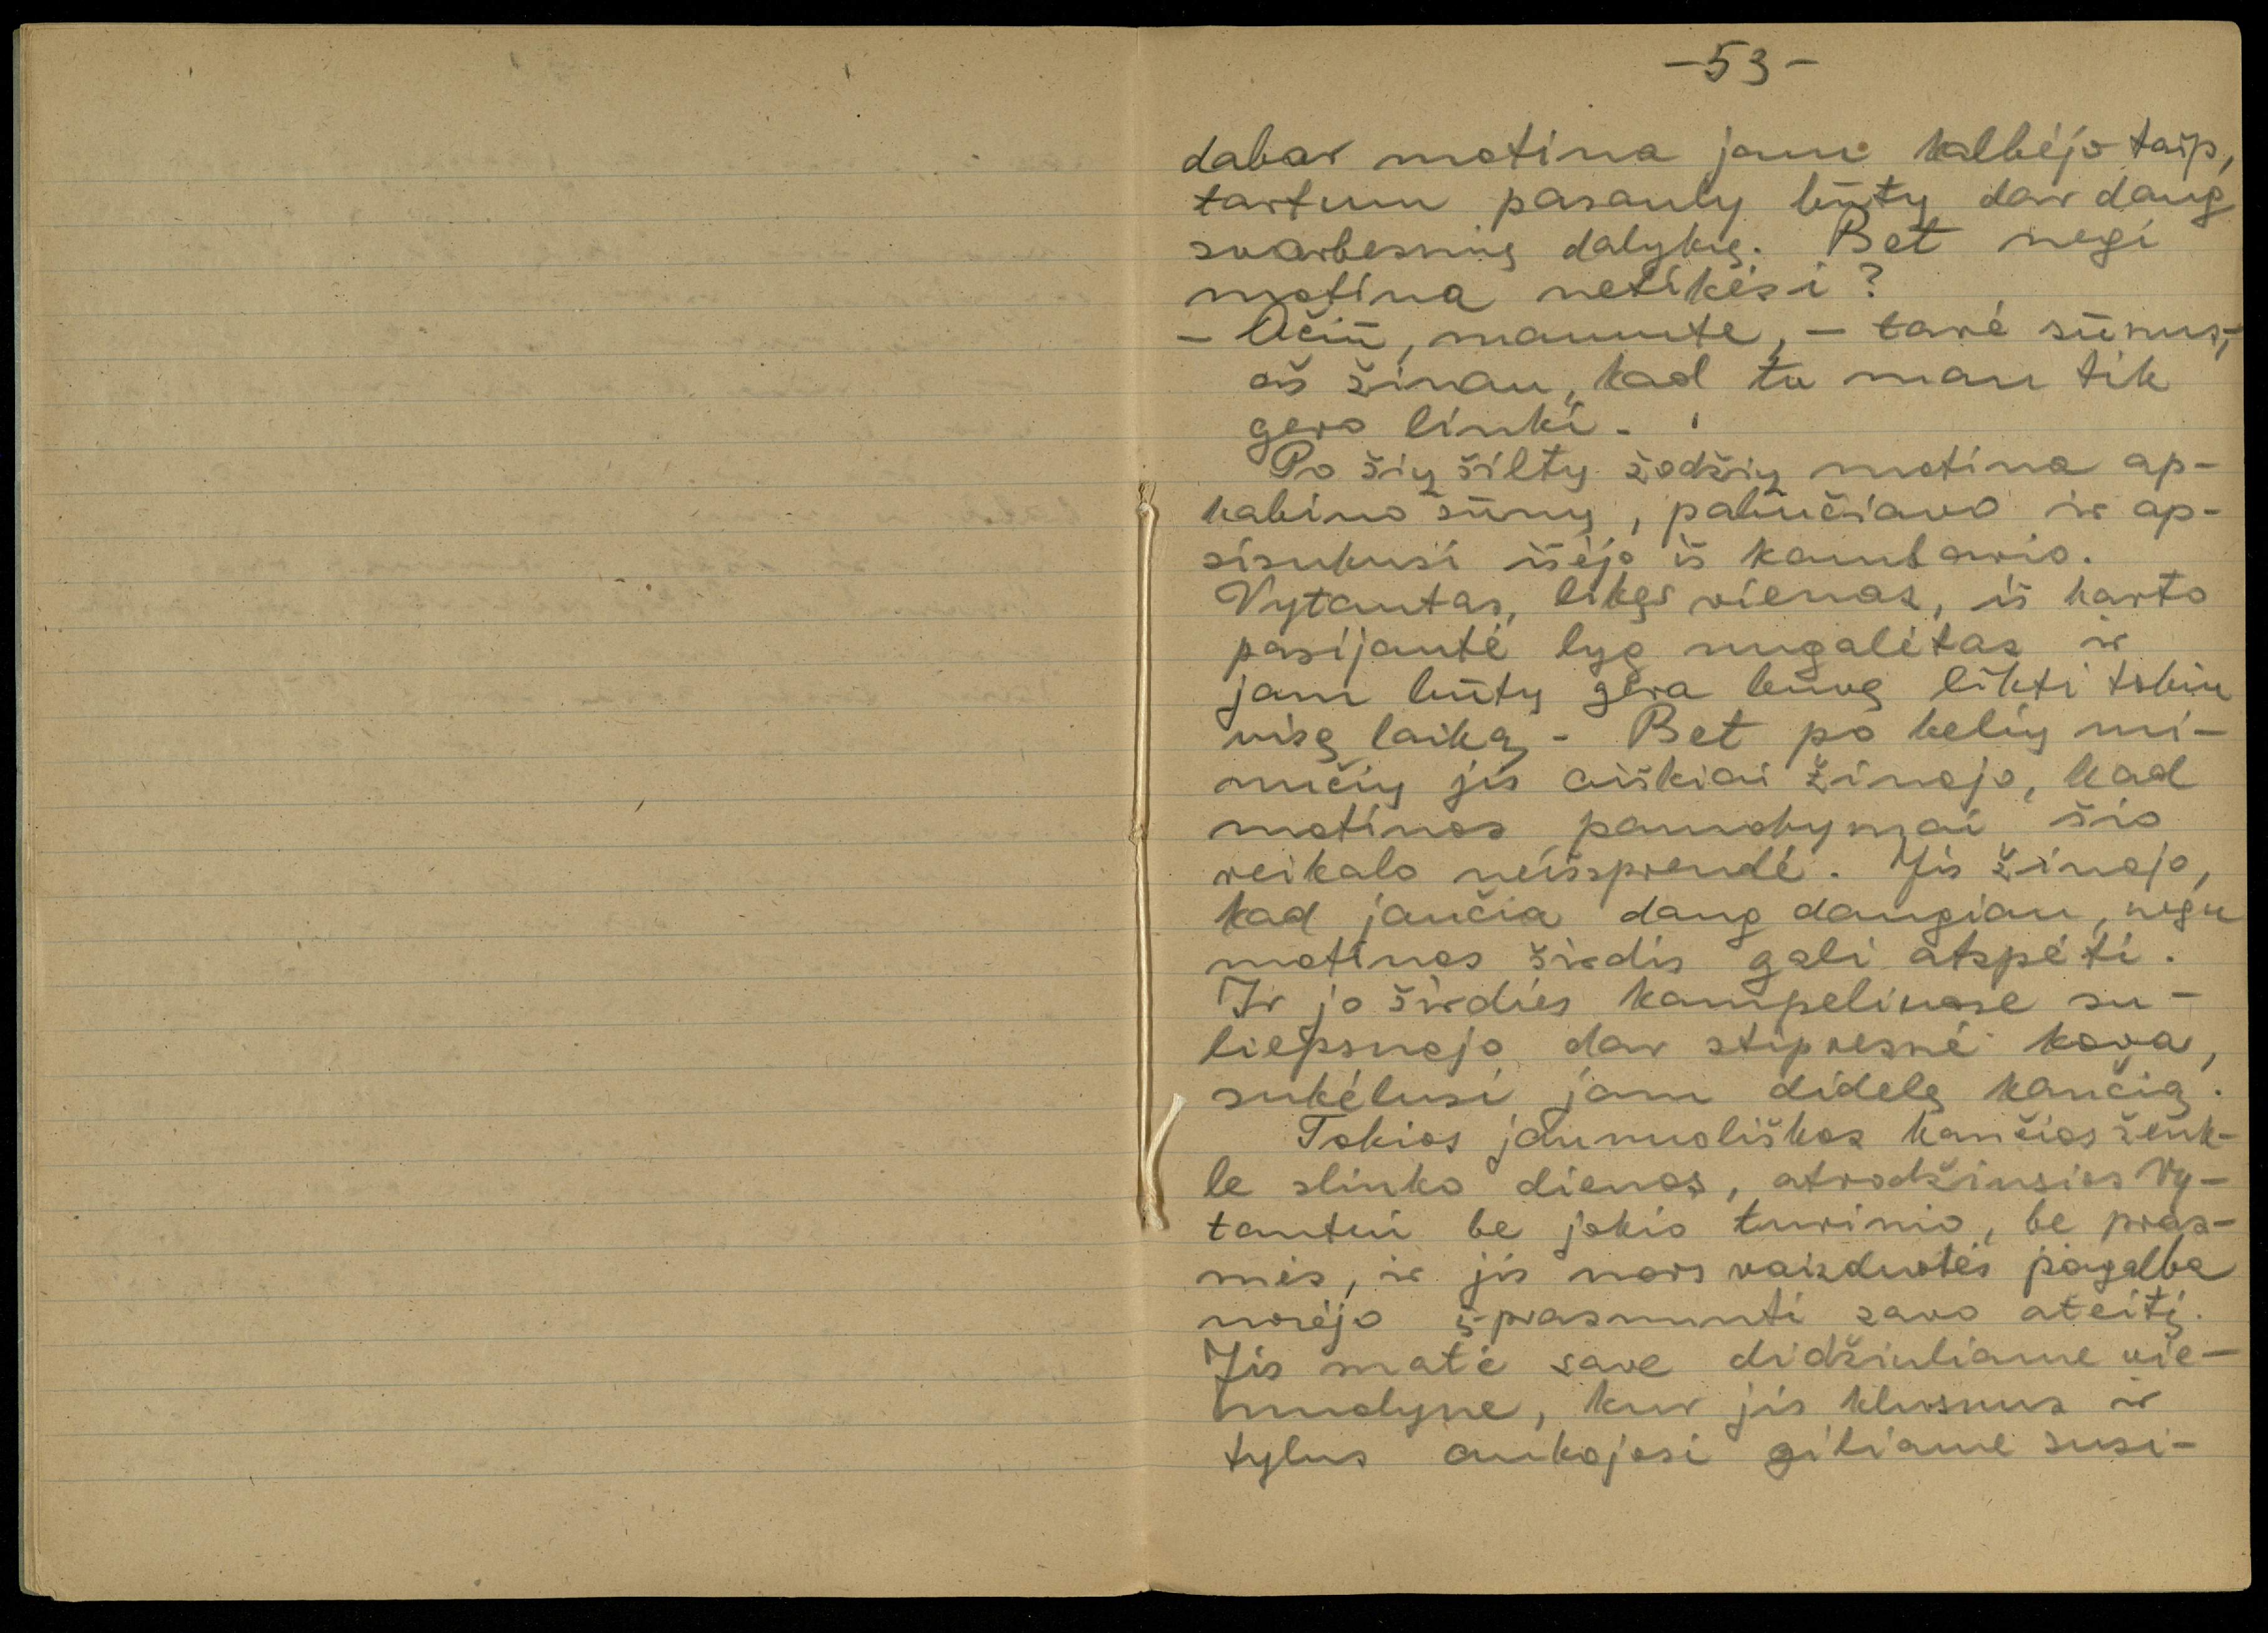 -53-
dabar motina jam kalbėjo taip,
tartum pasauly būtų dar daug
svarbesnių dalykų. Bet negi
motina netikėsi?
- Ačiū, mamute, - tarė sūnus,-
aš žinau, kad tu man tik
gero linki.
Po šių šiltų žodžių motina ap-
kabino sūnų, pabučiavo ir ap-
sisukusi išėjo iš kambario.
Vytautas, likęs vienas, iš karto
pasijautė lyg nugalėtas ir
jam būtų gera buvę likti tokiu
visą laiką. Bet po kelių mi-
nučių jis aiškiai žinojo, kad
motinos pamokymai šio
reikalo neišsprendė. Jis žinojo,
kad jaučia daug daugiau, negu
motinos širdis gali atspėti.
Ir jo širdies kampeliuose su-
liepsnojo dar stipresnė kova,
sukėlusi jam didelę kančią.
Tokios jaunuoliškos kančios ženk-
le slinko dienos, atrodžiusios Vy-
tautui be jokio turinio, be pras-
mės, ir jis nors vaizduotės pagalba
norėjo įprasminti savo ateitį.
Jis matė save didžiuliame vie-
nuolyne, kur jis klusnus ir
tylus aukojosi giliame susi-